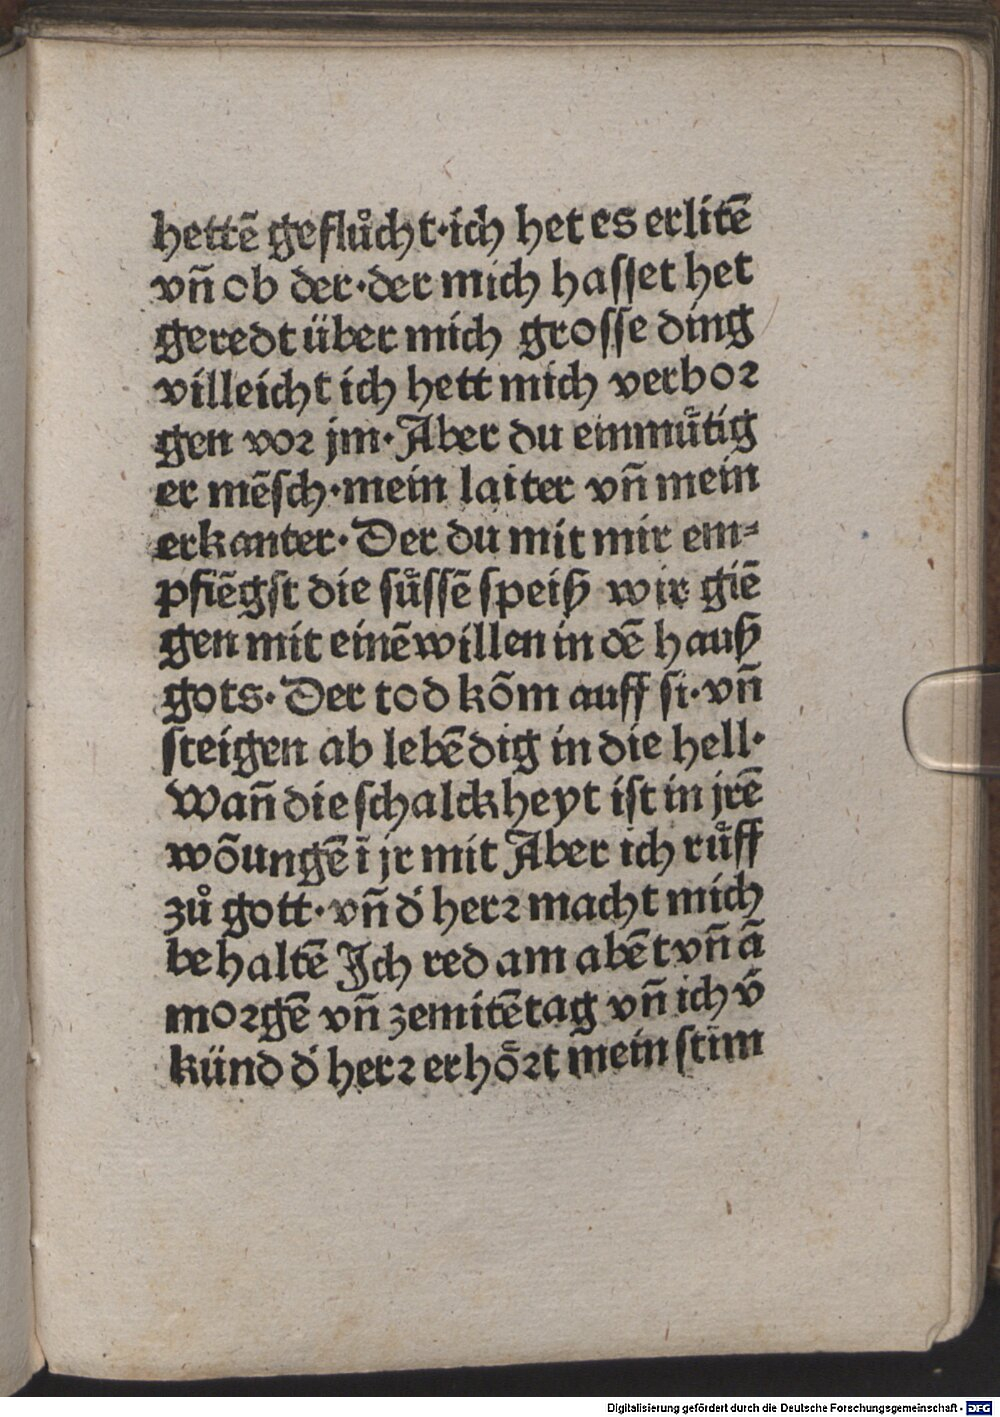 hettē geflůcht·ich het es erlitē
vñ ob der·der mich hasset het
geredt über mich grosse ding
villeicht ich hett mich verbor
gen vor jm·Aber du einmüͤtig
er mēsch·mein laiter vñ mein
erkanter·Der du mit mir em⸗
pfiēgst die süͤssē speiß wir giē
gen mit einē willen in dē hauß
gots·Der tod kōm auff si·vñ
steigen ab lebēdig in die hell·
Wañ die schalckheyt ist in jrē
wōungē ī jr mit Aber ich růff
zů gott·vñ d' herr macht mich
behaltē Ich red am abēt vñ ā
morgē vñ zemitētag vñ ich v̄
künd d' herr erhört mein stim
Digitalisierung gefördert durch die Deutsche Forschungsgemeinschaft - DFG